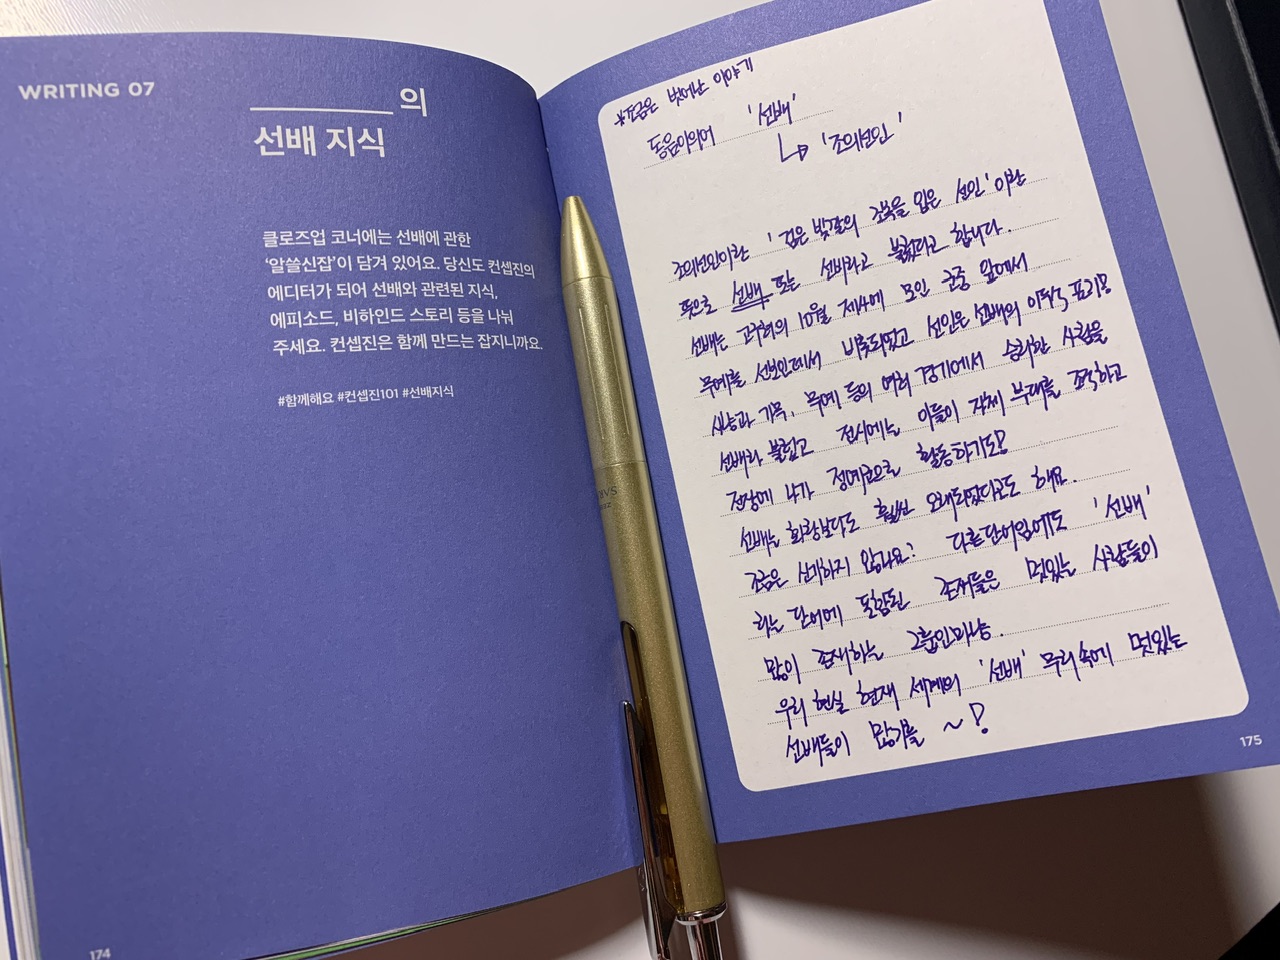 WRITING 07
의
선배 지식
클로즈업 코너에는 선배에 관한
'알쓸신잡'이 담겨 있어요. 당신도 컨셉진의
에디터가 되어 선배와 관련된 지식,
에피소드, 비하인드 스토리 등을 나눠
주세요. 컨셉진은 함께 만드는 잡지니까요.
#함께해요 #컨셉진101 #선배지식
174
*조금은 벗어난 이야기
동음이의어 '선배'
↳ '조의선인'
조의선인이란 '검은 빛깔의 조복을 입은 선인'이란
뜻으로 선배 또는 선비라고 불렸다고 합니다.
선배는 고구려의 10월 제사에 모인 군중 앞에서
무예를 선보인데서 비롯되었고 선인은 선배의 이두식 표기!!
사냥과 가무, 무예 등의 여러 경기에서 승리한 사람을
선배라 불렀고 전시에는 이들이 자체 부대를 조직하고
전장에 나가 정예군으로 활동하기도!
선배는 화랑보다도 훨씬 오래되었다고도 해요.
조금은 신기하지 않나요? 다른 단어임에도 '선배'
라는 단어에 포함된 존재들은 멋있는 사람들이
많이 존재하는 그룹인마냥.
우리 현실 현재 세계의 '선배' 무리 속에 멋있는
선배들이 많기를 ~!
175